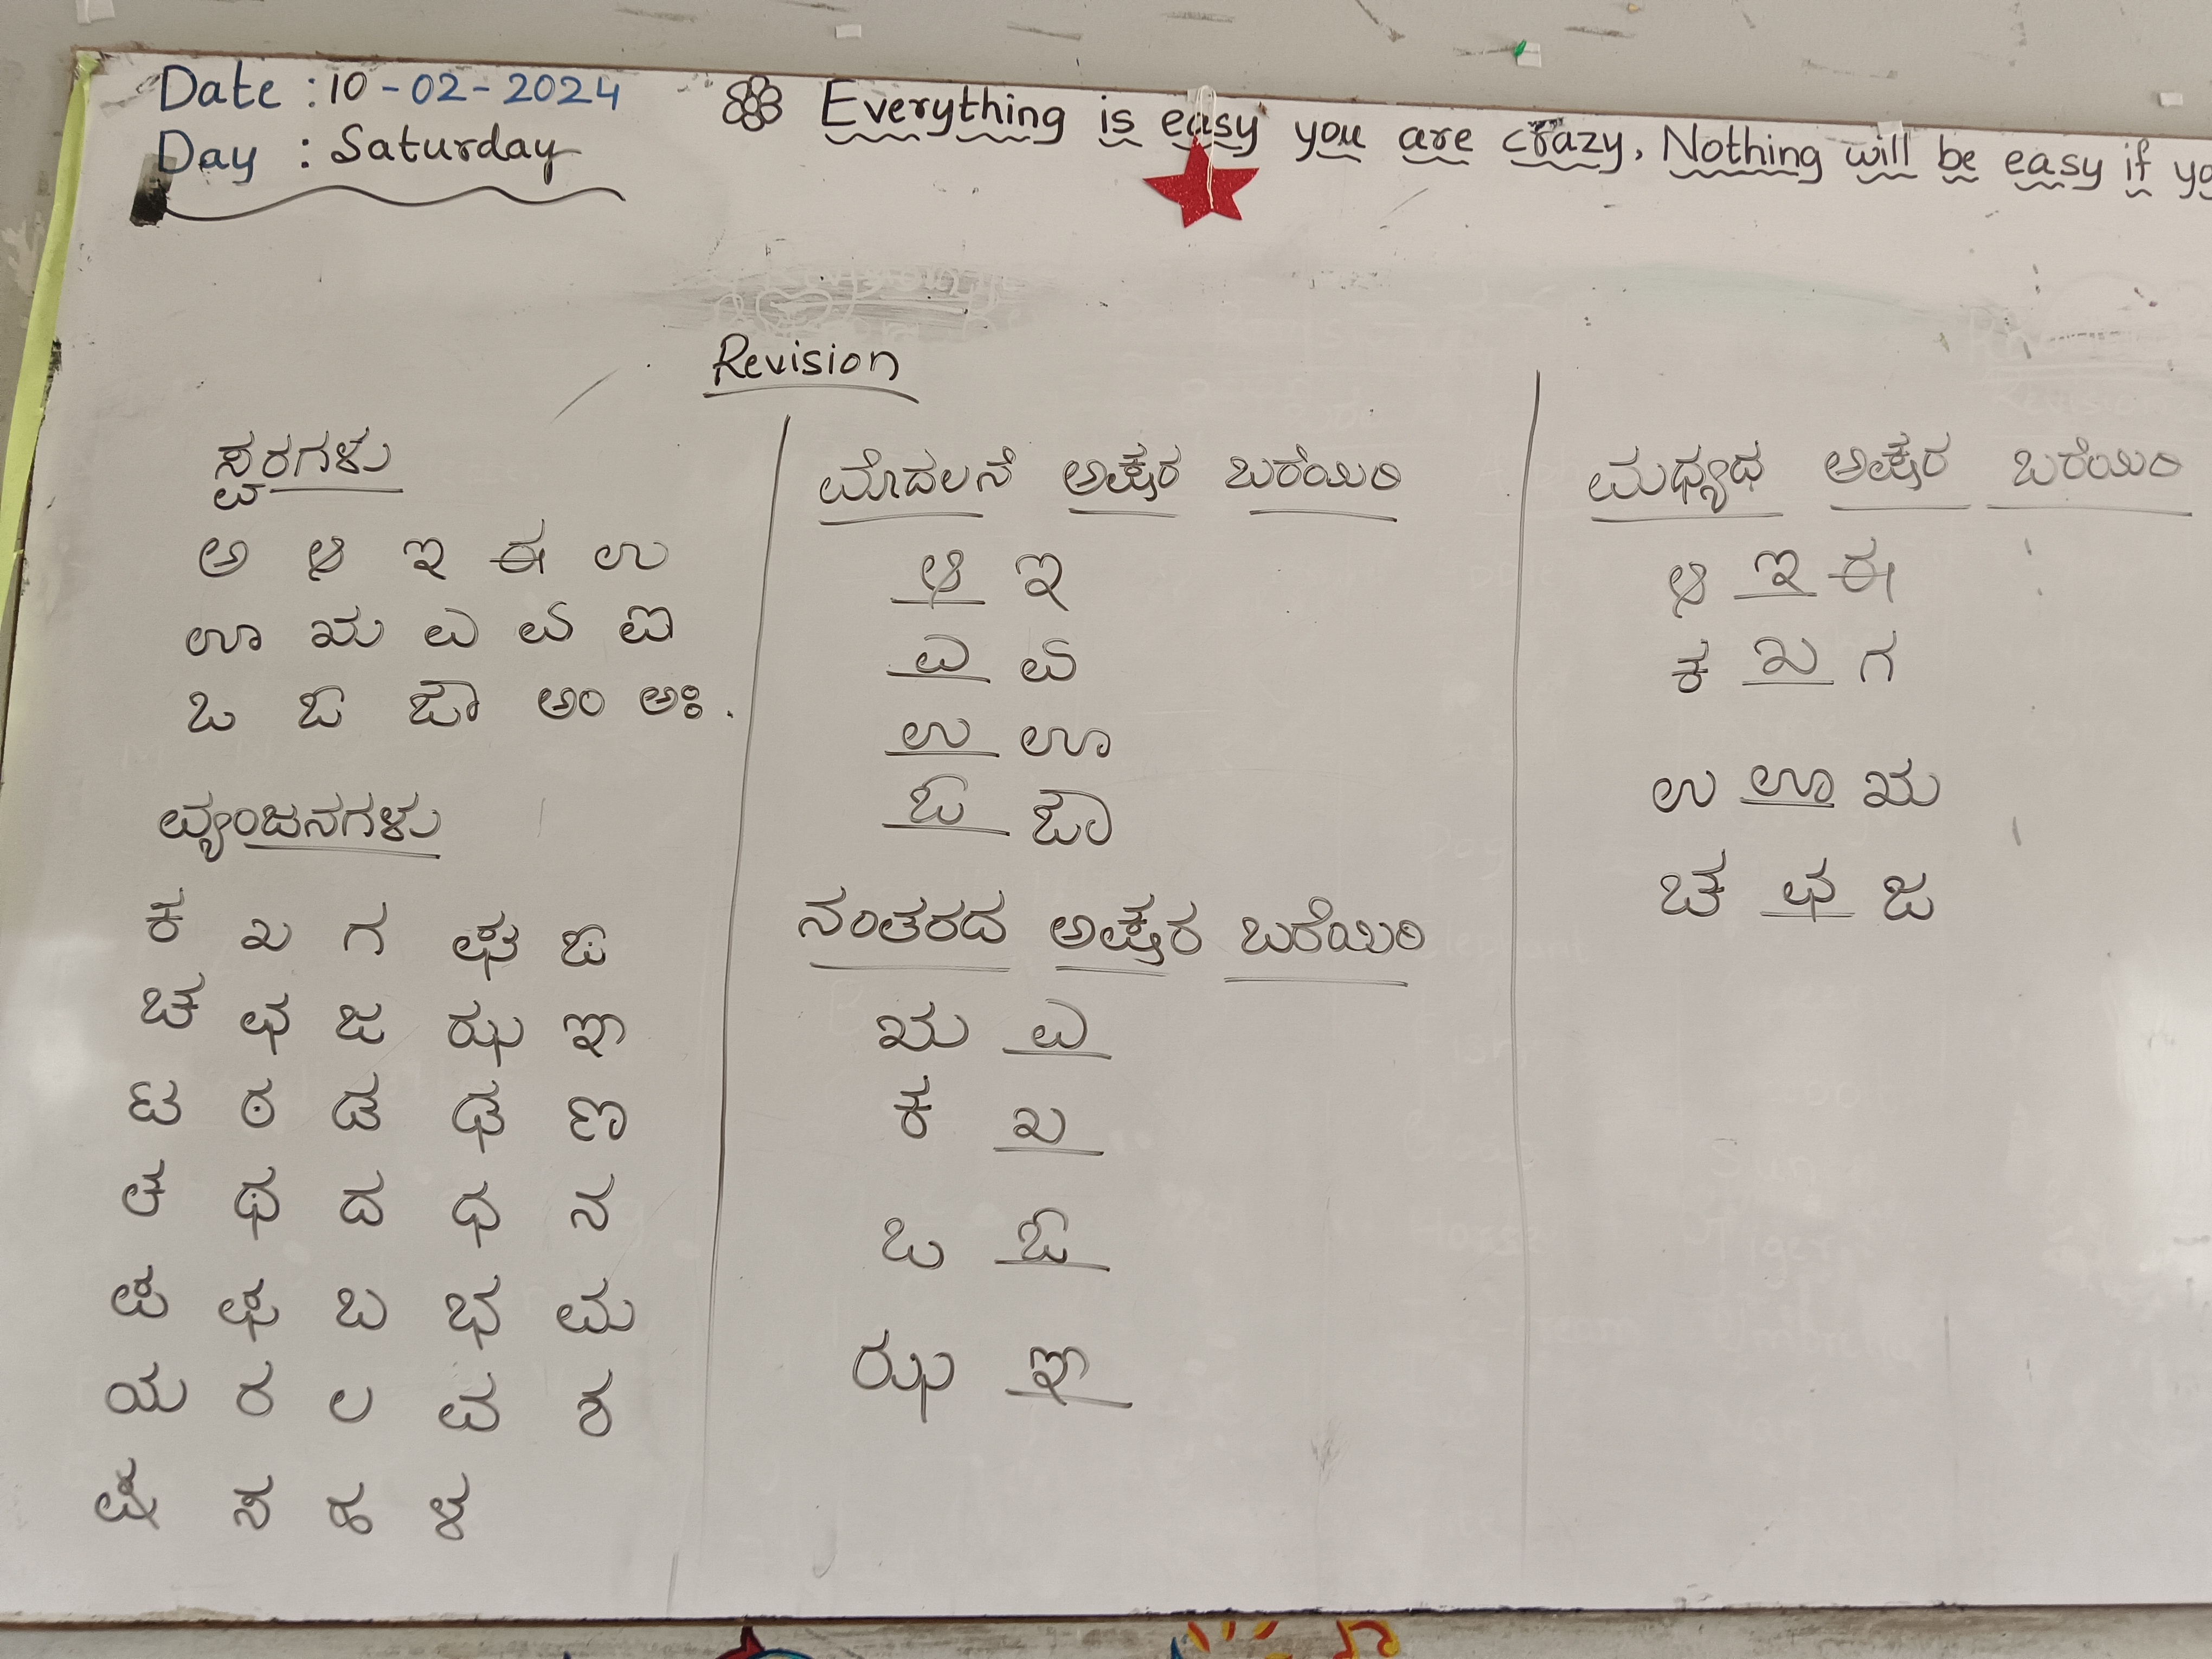 Date : 10-02-2024
Day : Saturday
Everything is easy you are crazy, Nothing will be easy if
Revision
ಸ್ವರಗಳು
ಅ ಆ ಇ ಈ ಉ
ಊ ಋ ಎ ಏ ಐ
ಒ ಓ ಔ ಅಂ ಅಃ .
ವ್ಯಂಜನಗಳು
ಕ ಖ ಗ ಘ ಙ
ಚ ಛ ಜ ಝ ಞ
ಟ ಠ ಡ ಢ ಣ
ತ ಥ ದ ಧ ನ
ಪ ಫ ಬ ಭ ಮ
ಯ ರ ಲ ವ ಶ
ಷ ಸ ಹ ಳ
ಮೊದಲನೆ ಅಕ್ಷರ ಬರೆಯಿರಿ
ಆ ಇ
ಎ ಏ
ಉ ಊ
ಓ ಔ
ನಂತರದ ಅಕ್ಷರ ಬರೆಯಿರಿ
ಋ ಎ
ಕ ಖ
ಒ ಓ
ಝ ಞ
ಮಧ್ಯದ ಅಕ್ಷರ ಬರೆಯಿರಿ
ಆ ಇ ಈ
ಕ ಖ ಗ
ಉ ಊ ಋ
ಚ ಛ ಜ